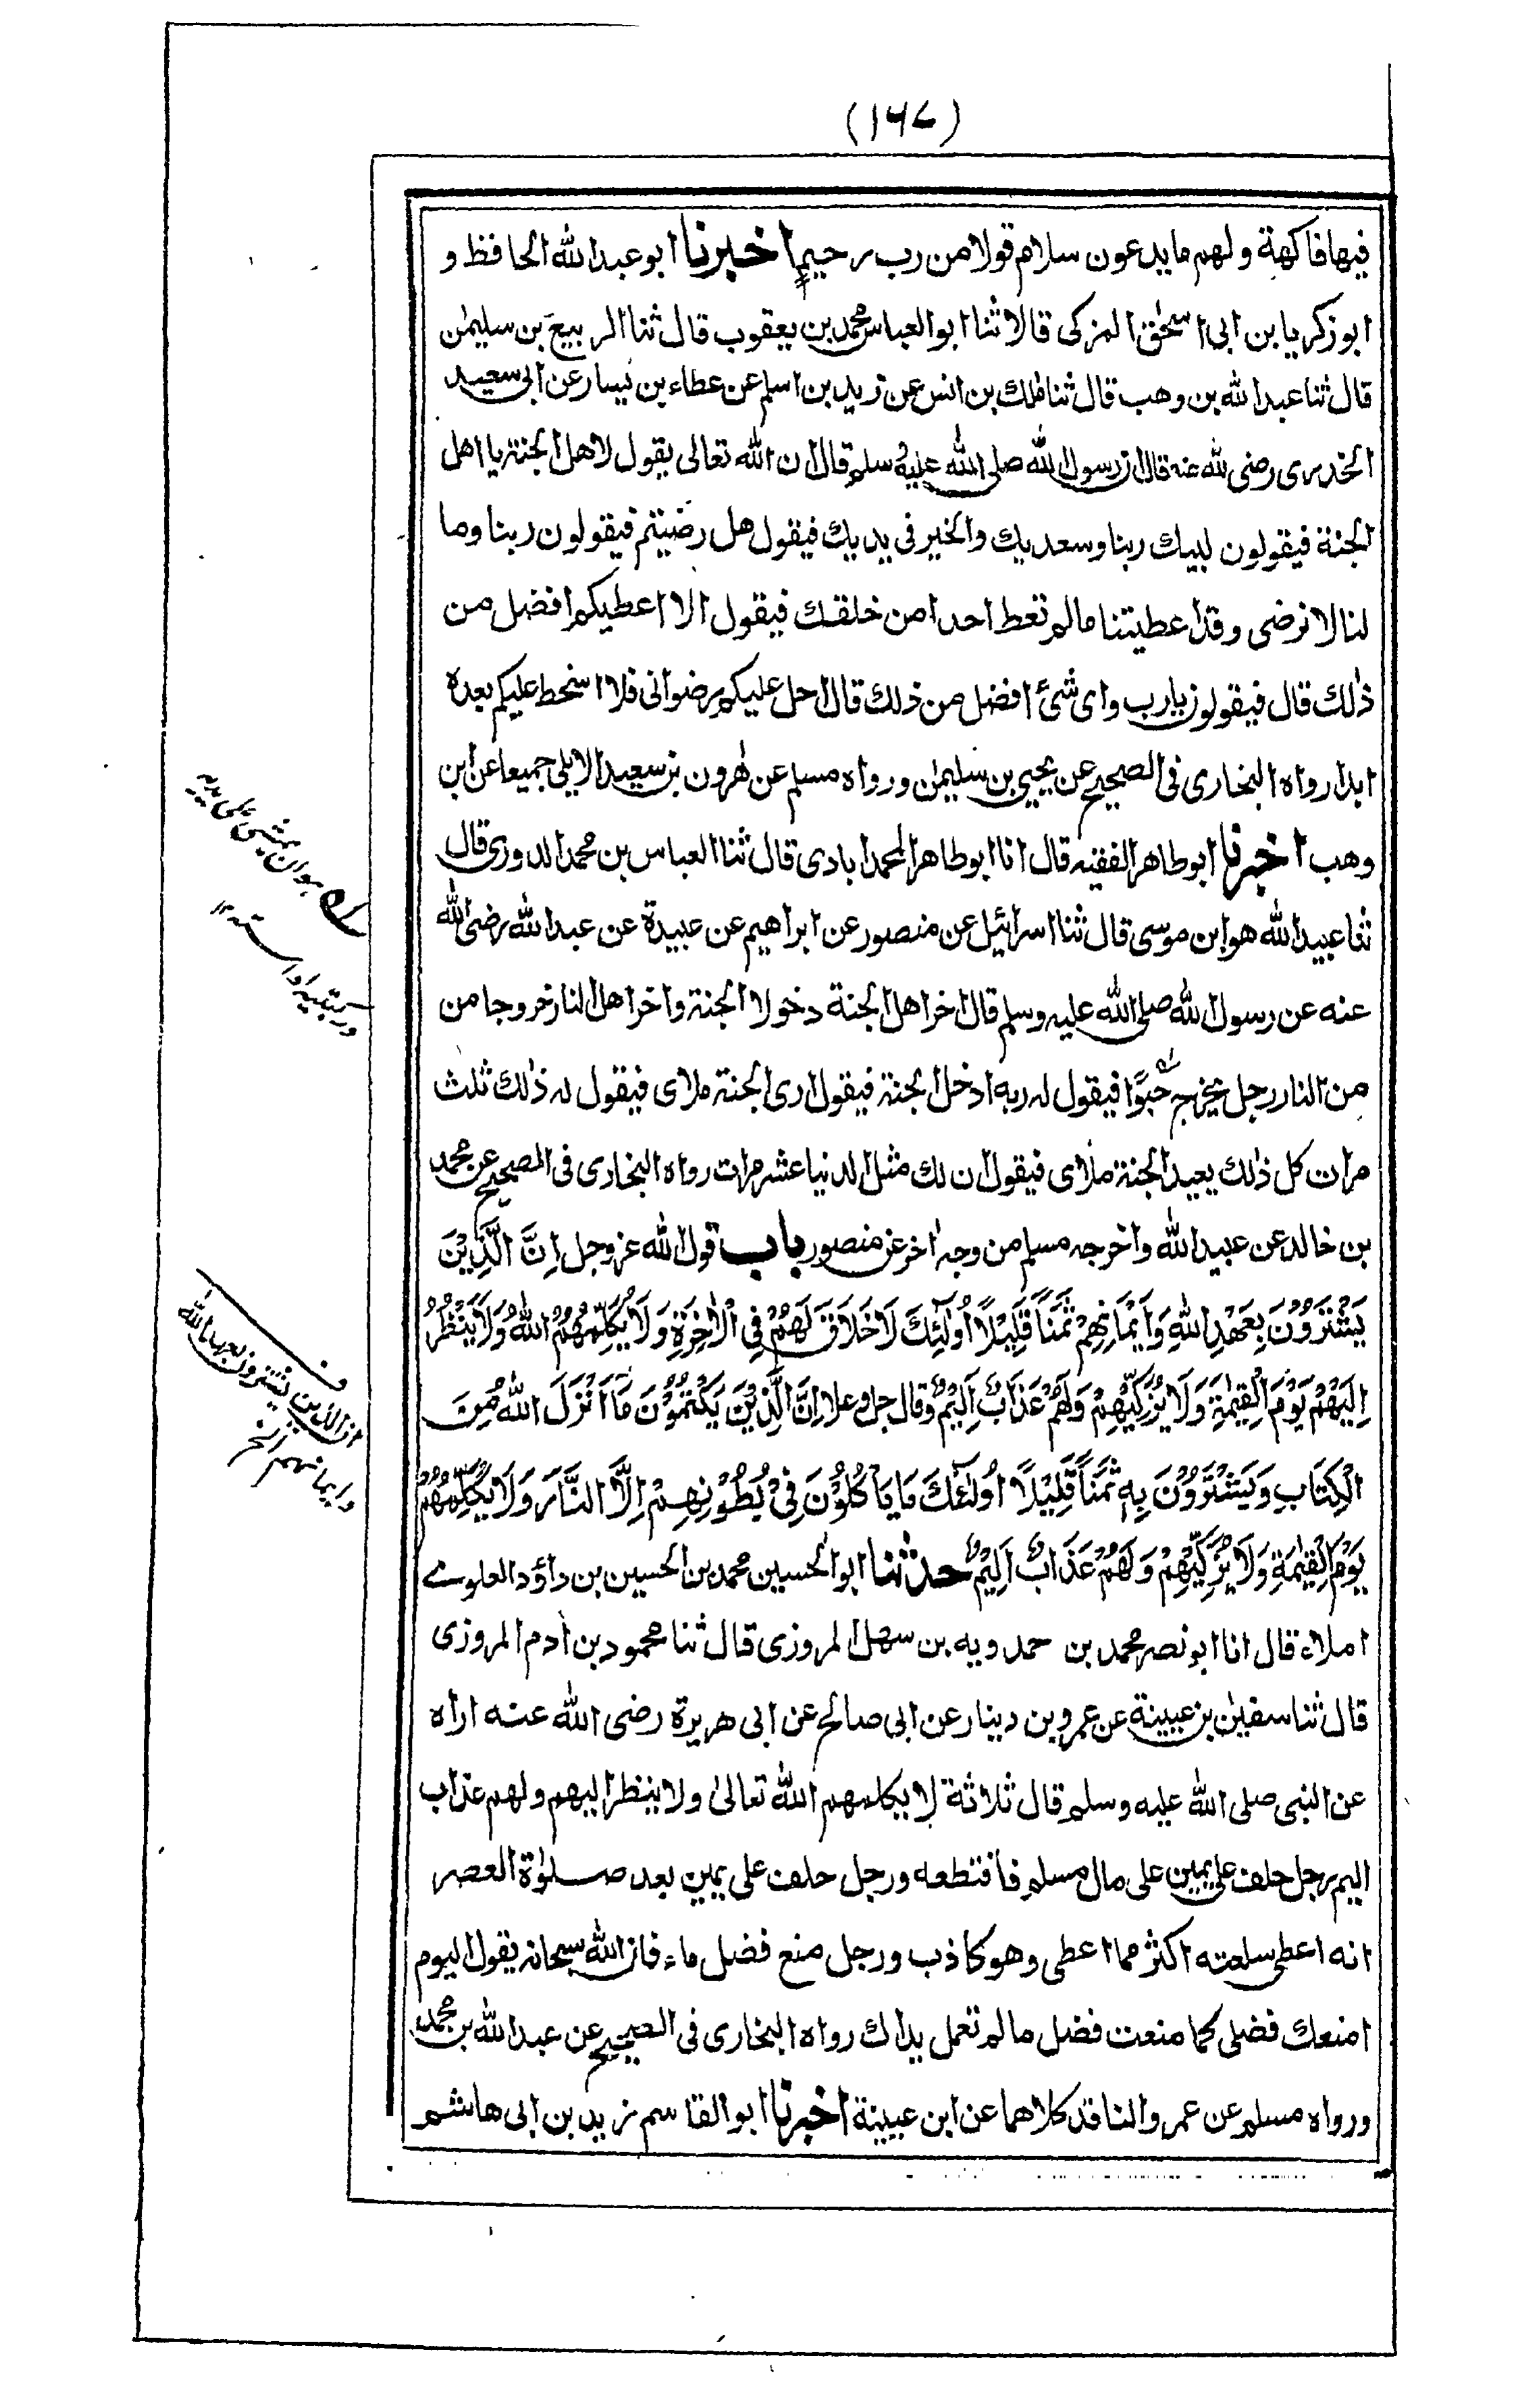 (۱۶۷)
فيها فاكهة ولهم ما يدعون سلام قولا من رب رحيم اخبرنا ابو عبد الله الحافظ و
ابو زكريا بن ابى اسحٰق المزكى قالا ثنا ابو العباس محمد بن يعقوب قال ثنا الربيع بن سليمٰن
قال ثنا عبد الله بن وهب قال ثنا مٰلك بن انس عن زيد بن اسلم عن عطاء بن يسار عن ابى سعيد
الخدرى رضى الله عنه قال ان رسول الله صلى الله عليه وسلم قال ان الله تعالى يقول لاهل الجنة يا اهل
الجنة فيقولون لبيك ربنا وسعديك والخير فى يديك فيقول هل رضيتم فيقولون ربنا وما
لنا لا نرضى وقد اعطيتنا مالم تعط احدا من خلقك فيقول الا اعطيكم افضل من
ذٰلك قال فيقولون يا رب واى شئ افضل من ذلك قال احل عليكم رضوانى فلا اسخط عليكم بعده
ابدا رواه البخارى فى الصحيح عن يحيى بن سليمٰن ورواه مسلم عن هٰرون بن سعيد الايلى جميعا عن ابن
وهب اخبرنا ابو طاهر الفقيه قال انا ابو طاهر المحمدابادى قال ثنا العباس بن محمد الدورى قال
ثنا عبيد الله هو ابن موسى قال ثنا اسرائيل عن منصور عن ابراهيم عن عبيدة عن عبد الله رضى الله
عنه عن رسول الله صلى الله عليه وسلم قال اخر اهل الجنة دخولا الجنة واخر اهل النار خروجا من
من النار رجل يخرج حَبوًا فيقول له ربه ادخل الجنة فيقول ارى الجنة ملاى فيقول له ذٰلك ثلث
مرات كل ذٰلك يعيد الجنة ملاى فيقول ان لك مثل الدنيا عشر مرات رواه البخارى فى الصحيح عن محمد
بن خالد عن عبيد الله واخرجه مسلم من وجه اخر عن منصور باب قول الله عز وجل اِنَّ الَّذِيْنَ
يَشْتَرُوْنَ بِعَهْدِ اللهِ وَاَيْمَانِهِمْ ثَمَنًا قَلِيْلًا اُولٰٓئِكَ لَا خَلَاقَ لَهُمْ فِى الْاٰخِرَةِ وَلَا يُكَلِّمُهُمُ اللهُ وَلَا يَنْظُرُ
اِلَيْهِمْ يَوْمَ الْقِيٰمَةِ وَلَا يُزَكِّيْهِمْ وَلَهُمْ عَذَابٌ اَلِيْمٌ وقال جل وعلا اِنَّ الَّذِيْنَ يَكْتُمُوْنَ مَا اَنْزَلَ اللهُ مِنَ
الْكِتَابِ وَيَشْتَرُوْنَ بِهٖ ثَمَنًا قَلِيْلًا اُولٰٓئِكَ مَا يَاْكُلُوْنَ فِىْ بُطُوْنِهِمْ اِلَّا النَّارَ وَلَا يُكَلِّمُهُمُ
يَوْمَ الْقِيٰمَةِ وَلَا يُزَكِّيْهِمْ وَلَهُمْ عَذَابٌ اَلِيْمٌ حدثنا ابو الحسين محمد بن الحسين بن داؤد العلوے
املاء قال انا ابو نصر محمد بن حمدويه بن سهل المروزى قال ثنا محمود بن اٰدم المروزى
قال ثنا سفيٰن بن عيينة عن عمرو بن دينار عن ابى صالح عن ابى هريرة رضى الله عنه اراه
عن النبى صلى الله عليه وسلم قال ثلاثة لا يكلمهم الله تعالىٰ ولا ينظر اليهم ولهم عذاب
اليم رجل حلف على يمين على مال مسلم فاقتطعه ورجل حلف على يمين بعد صلوٰة العصر
انه اعطى سلعته اكثر مما اعطى وهو كاذب ورجل منع فضل ماء فان الله سبحانه يقول اليوم
امنعك فضلى كما منعت فضل مالم تعمل يداك رواه البخارى فى الصحيح عن عبد الله بن محمد
ورواه مسلم عن عمرو الناقد كلاهما عن ابن عيينة اخبرنا ابو القاسم زيد بن ابى هاشم
هو ان يمشى على يديه
وركبتيه او استه ۱۲
ان الذين يشترون بعهد الله
وايمانهم الخ